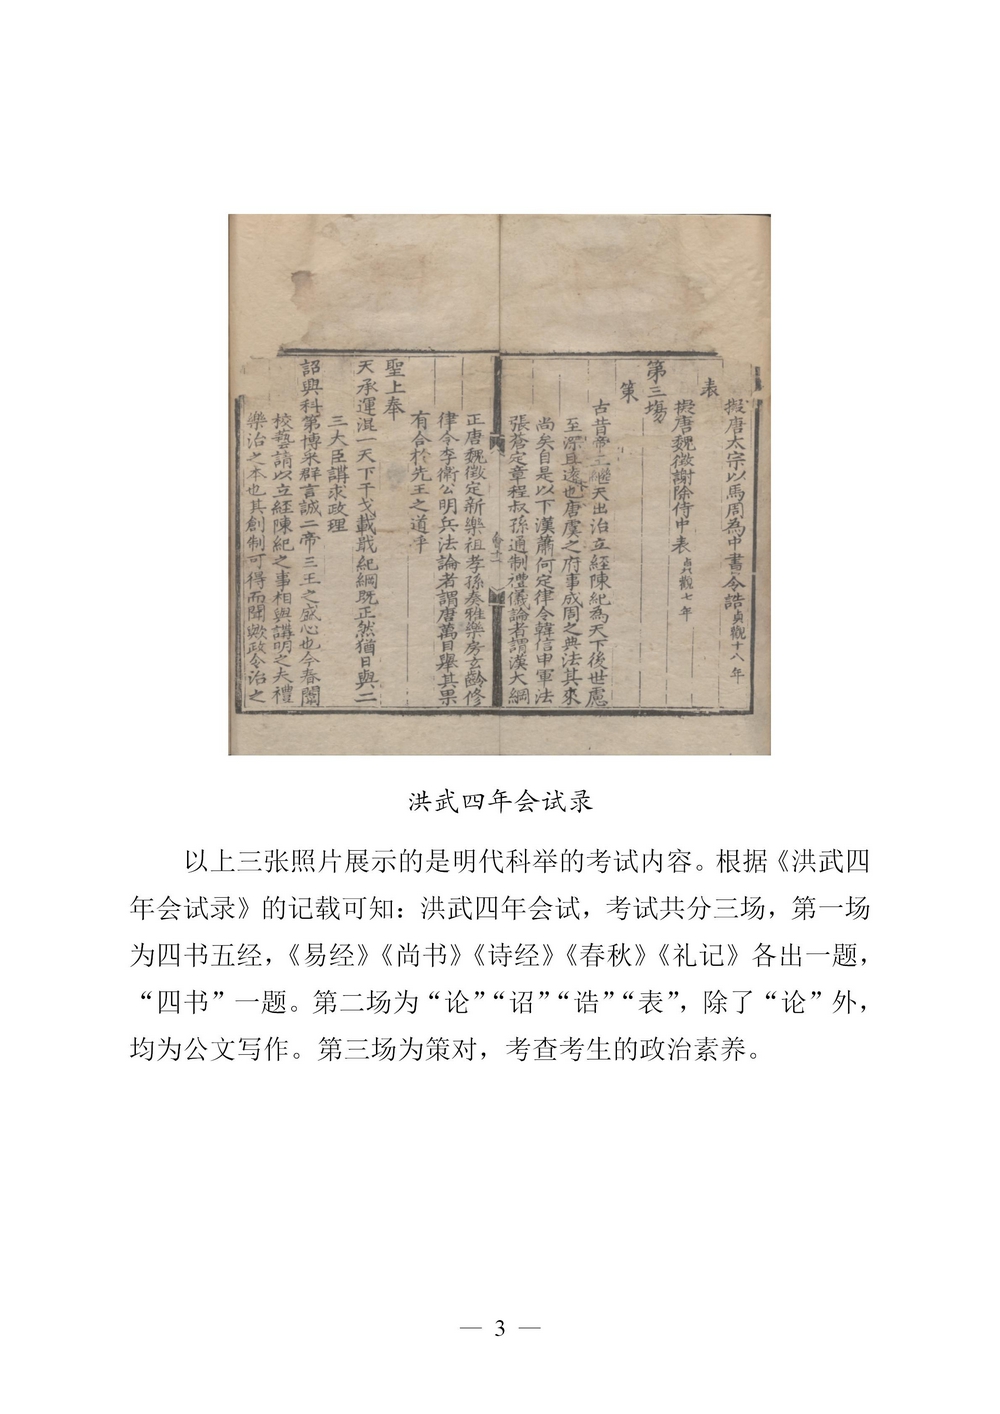 擬唐太宗以馬周為中書令誥貞觀十八年
表
擬唐魏徵謝除侍中表貞觀七年
第三場
策
古昔帝王繼天出治立經陳紀為天下後世慮
至深且遠也唐虞之府事成周之典法其來
尚矣自是以下漢蕭何定律令韓信申軍法
張蒼定章程叔孫通制禮儀論者謂漢大綱
正唐魏徵定新樂祖孝孫奏雅樂房玄齡修
律令李衞公明兵法論者謂唐萬目舉其果
有合於先王之道乎
聖上奉
天承運混一天下干戈載戢紀綱既正然猶日與二
三大臣講求政理
詔興科第博采群言誠二帝三王之盛心也今春闈
校藝請以立經陳紀之事相與講明之夫禮
樂治之本也其創制可得而聞歟政令治之
洪武四年会试录
以上三张照片展示的是明代科举的考试内容。根据《洪武四
年会试录》的记载可知：洪武四年会试，考试共分三场，第一场
为四书五经，《易经》《尚书》《诗经》《春秋》《礼记》各出一题，
“四书”一题。第二场为“论”“诏”“诰”“表”，除了“论”外，
均为公文写作。第三场为策对，考查考生的政治素养。
— 3 —